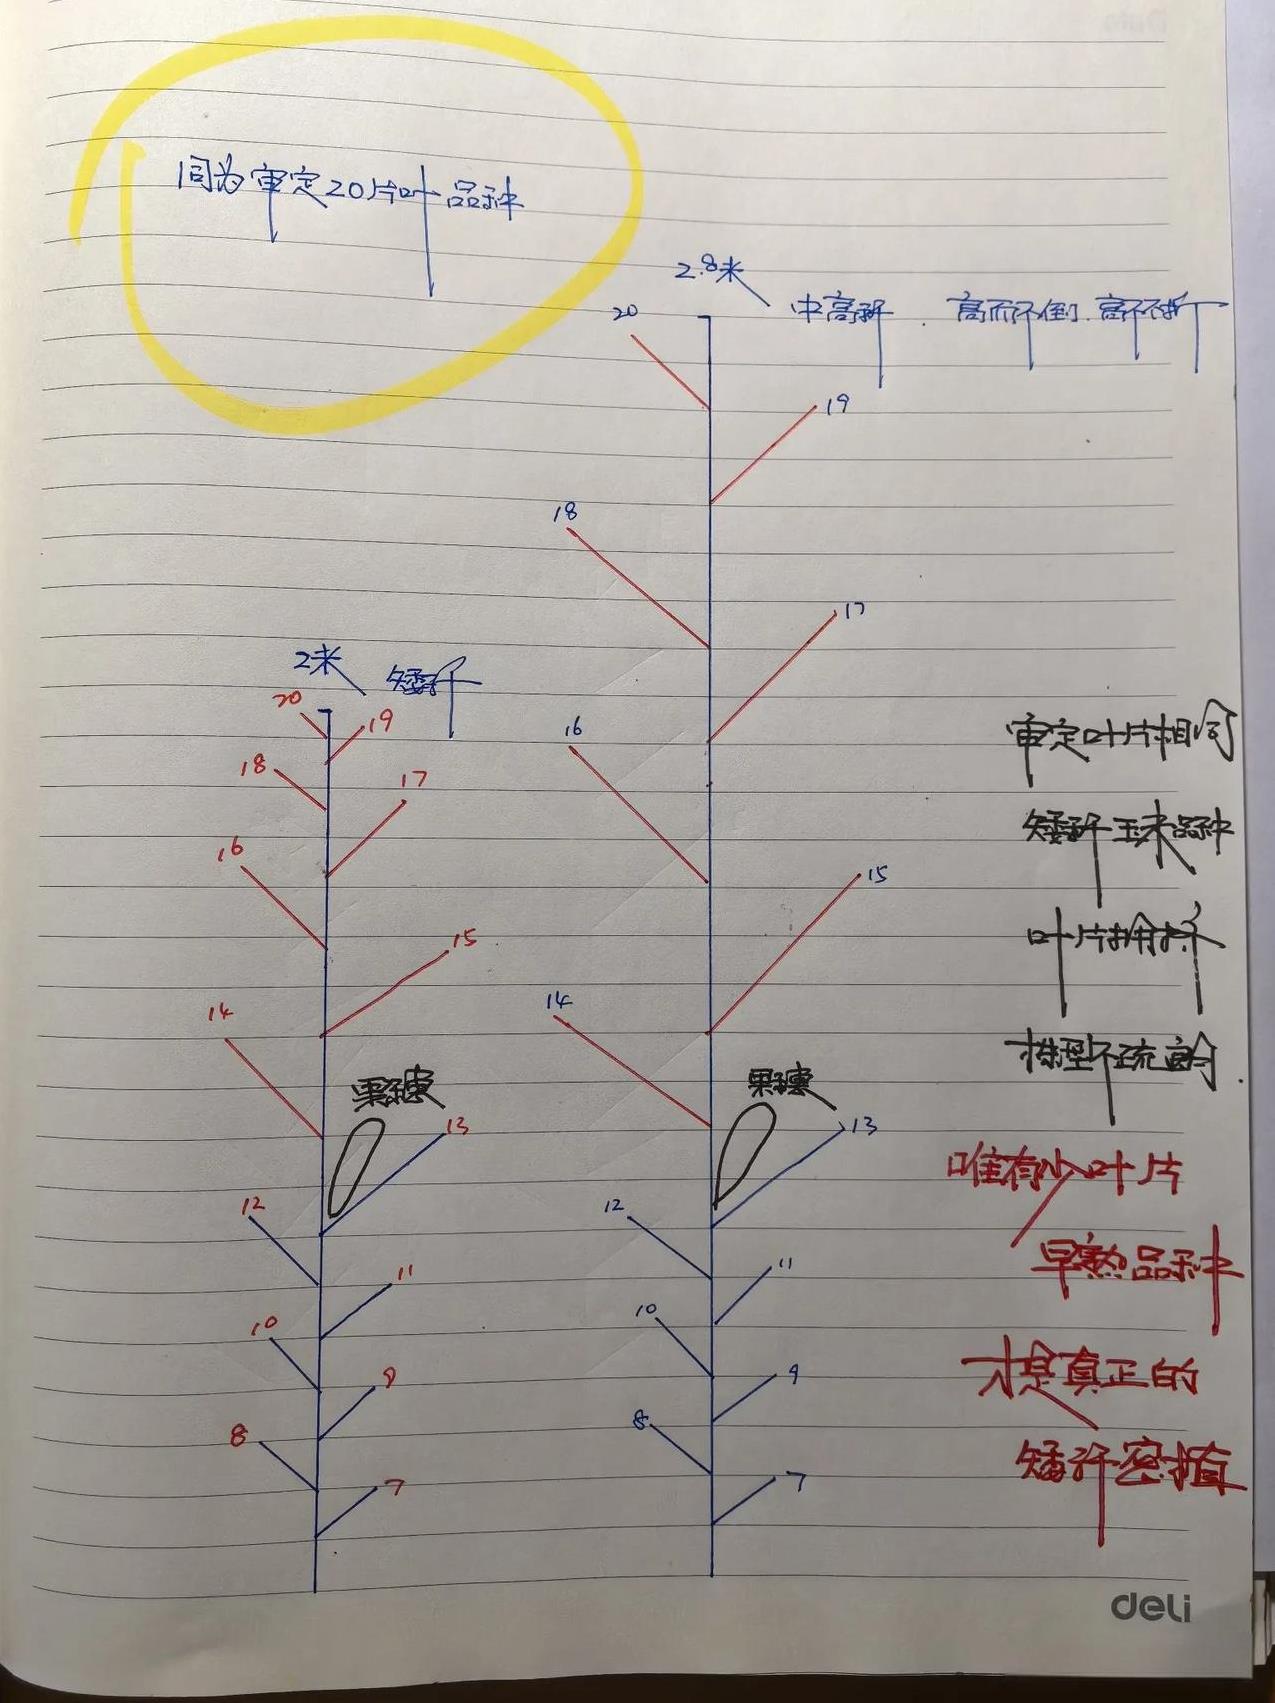 同为审定20片叶品种
2.8米
中高秆 高而不倒.高不折
20
19
18
17
16
15
14
果穗
13
12
11
10
9
8
7
2米
矮秆
20
19
18
17
16
15
14
果穗
13
12
11
10
9
8
7
审定叶片相同
矮秆玉米品种
叶片拥挤
株型不疏朗.
唯有少叶片
早熟品种
才是真正的
矮秆密植
deli